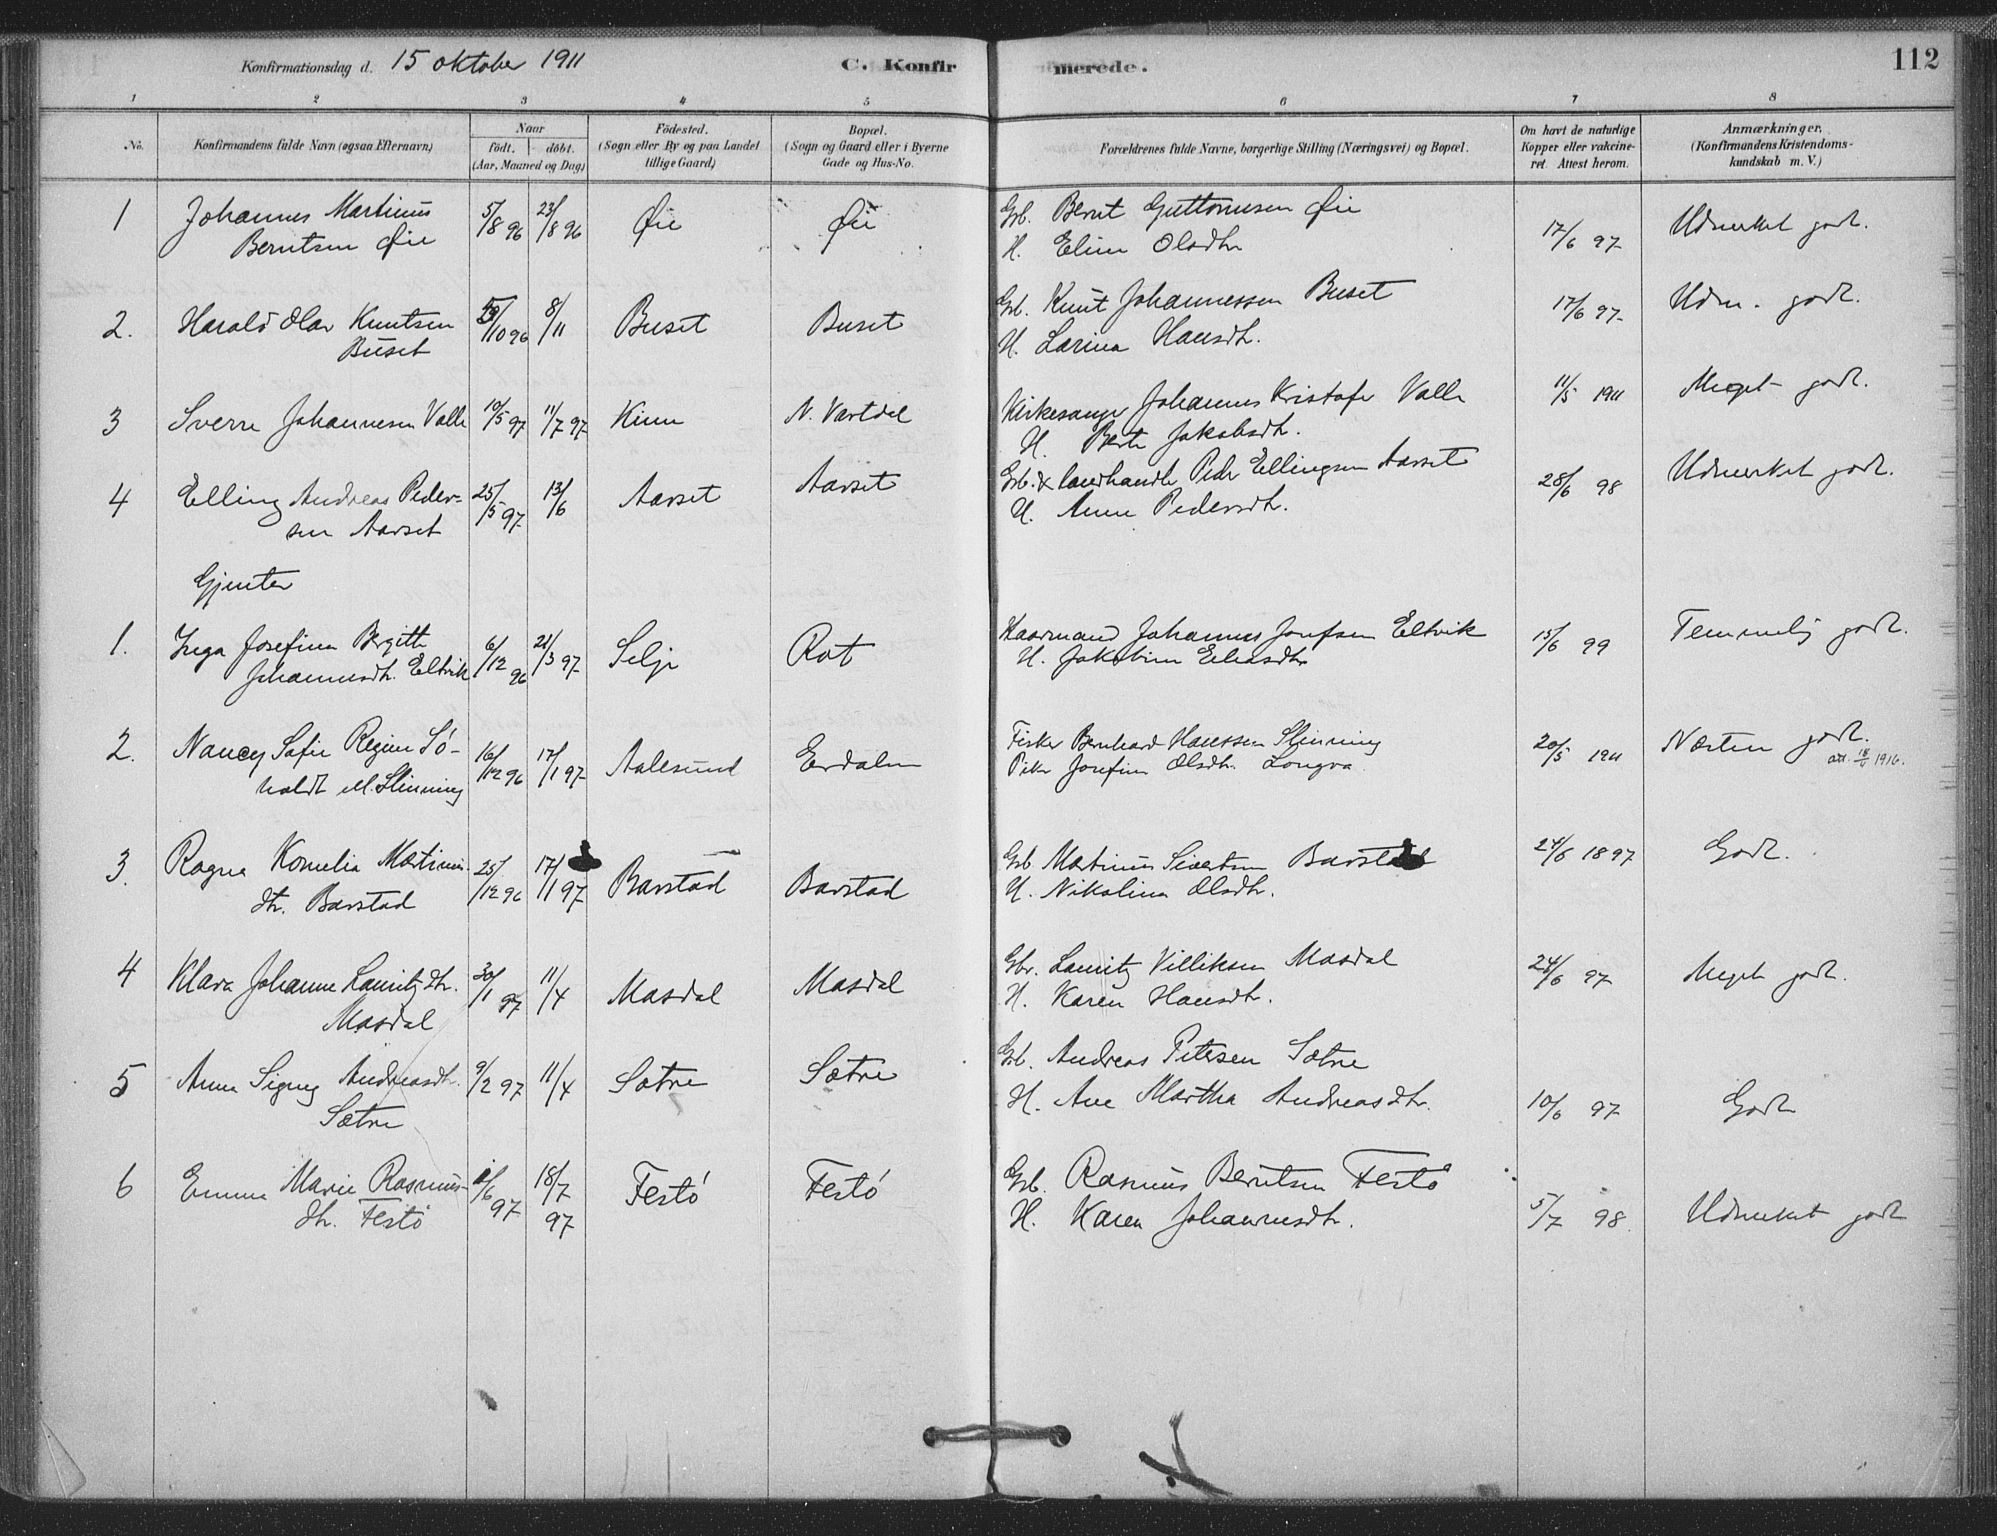 Konfirmationsdag d. 15 oktober 1911
C. Konfirmerede.
112
1 2 3 4 5 6 7 8
No.
Konfirmandens fulde Navn (ogsaa Efternavn)
Naar
födt. döbt.
(Aar, Maaned og Dag)
Födested.
(Sogn eller By og paa Landet
tillige Gaard)
Bopæl.
(Sogn og Gaard eller i Byerne
Gade og Hus-No.
Forældrenes fulde Navne, borgerlige Stilling (Næringsvei) og Bopæl.
Om havt de naturlige
Kopper eller vakcine-
ret. Attest herom.
Anmærkninger.
(Konfirmandens Kristendoms-
kundskab m. V.)
1 Johannes Martinus 5/8 96 23/8 96 Øie Øie Gb. Bernt Guttormsen Øie 17/6 97 Udmerket godt.
Berntsen Øie H. Eline Olsdtr
2. Harald Olav Knutsen /10 96 8/11 Buset Buset Gb. Knut Johannessen Buset 17/6 97 Udm. godt.
Buset H. Larina Hansdtr.
3 Sverre Johannesen Valle 10/5 97 11/7 97 Kinn N. Vartdal Kirkesanger Johannes Kristofer Valle 11/5 1911 Meget godt.
H. Berte Jakobsdtr.
4 Elling Andreas Peder- 25/5 97 13/6 Aarset Aarset Gb. & landhandler Peder Ellingsen Aarset 28/6 98 Udmerket godt.
sen Aarset H. Anne Pedersdtr.
Gjenter
1. Inga Josefina Bergitte 6/12 96 21/3 97 Selje Rot Kaarmand Johannes Josefsen Eltvik 15/6 99 Temmelig godt.
Johannesdtr. Eltvik H. Jakobine Eliasdtr
2. Nancy Sofie Regine Sö- 16/12 96 17/1 97 Aalesund Erdalen Fisker Bernhard Hanssen Slinning 20/5 1911 Næsten godt.
holdt M. Slinning Pike Josefine Olsdtr. Longva att. 18/5 1916.
3. Ragna Kornelia Martinus- 25/12 96 17/1 97 Barstad Barstad Gb. Martinus Sivertsen Barstad 24/6 1897 Godt.
dtr. Barstad H. Nikolina Olsdtr.
4 Klara Johanne Lauritzdtr. 30/1 97 11/4 Masdal Masdal Gbr. Lauritz Villiksen Masdal 24/6 97 Meget godt.
Masdal H. Karen Hansdtr.
5 Anna Signy Andreasdtr. 9/2 97 11/4 Sætre Sætre Gb. Andreas Petersen Sætre
Sætre H. Ane Martha Andreasdtr. 10/6 97 Godt
6 Emma Marie Rasmus- /6 97 18/7 97 Festö Festö Gb. Rasmus Berntsen Festö
dtr. Festö H. Karen Johannesdtr. 5/7 98. Udmerket godt